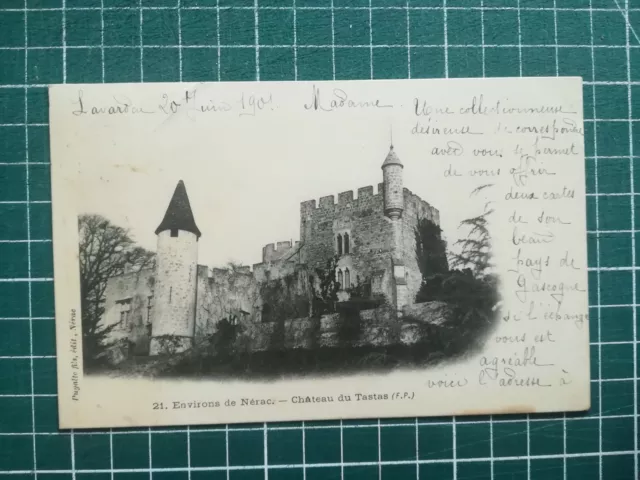 Lavardac 20 Juin 1901. Madame.
Une collectionneuse
désireuse de correspondre
avec vous se permet
de vous offrir
deux cartes
de son
beau
pays de
Gascogne
si l'échange
vous est
agréable
voici l'adresse à
Puyalte fils, édit., Nérac
21. Environs de Nérac. — Château du Tastas (F.P.)